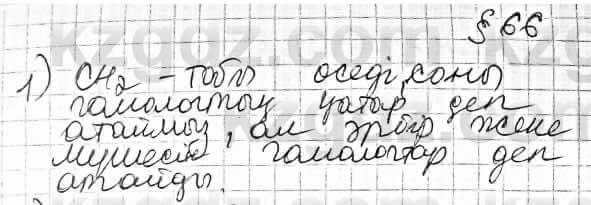 § 66
1) CH2 - тобы өседі, соны
гамологтық қатар деп
атаймыз, ал әрбір жеке
мүшесін гамологтар деп
атайды.